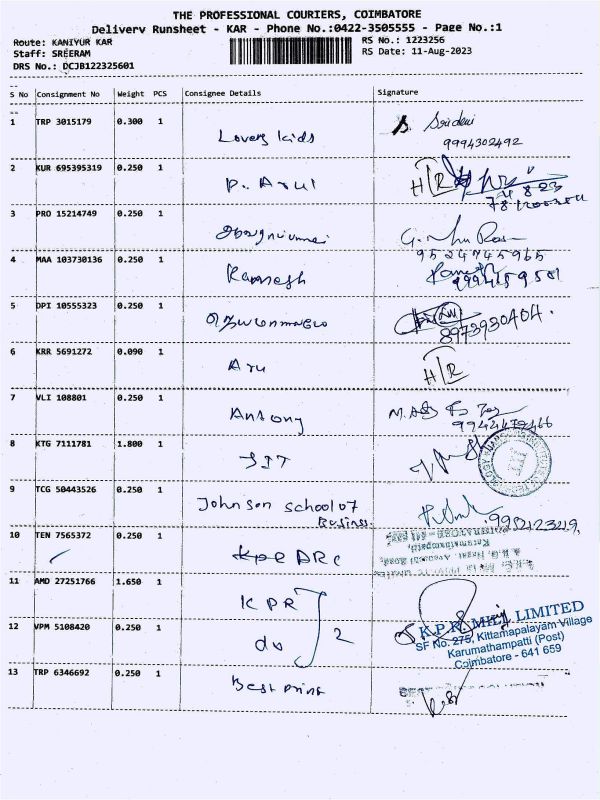 THE PROFESSIONAL COURIERS, COIMBATORE
Delivery Runsheet - KAR - Phone No.:0422-3505555 - Page No.:1
Route: KANIYUR KAR
RS No.: 1223256
Staff: SREERAM
RS Date: 11-Aug-2023
DRS No.: DCJB122325601
S No Consignment No Weight PCS Consignee Details Signature
1 TRP 3015179 0.300 1 Lovely kids Sridevi
9994302492
2 KUR 695395319 0.250 1 P. Arul H/R
3 PRO 15214749 0.250 1
9524745965
4 MAA 103730136 0.250 1 Ramesh Ramesh
9994159581
5 DPI 10555323 0.250 1
8973930404.
6 KRR 5691272 0.090 1 Aru H/R
7 VLI 108801 0.250 1 Antony
8 KTG 7111781 1.800 1 JIT
9 TCG 50443526 0.250 1 Johnson school of
Business
10 TEN 7565372 0.250 1
11 AMD 27251766 1.650 1 KPR
12 VPM 5108420 0.250 1 do 2
K.P.R. MILL LIMITED
SF No. 275, Kittampalayam Village
Karumathampatti (Post)
Coimbatore - 641 659
13 TRP 6346692 0.250 1 Best print